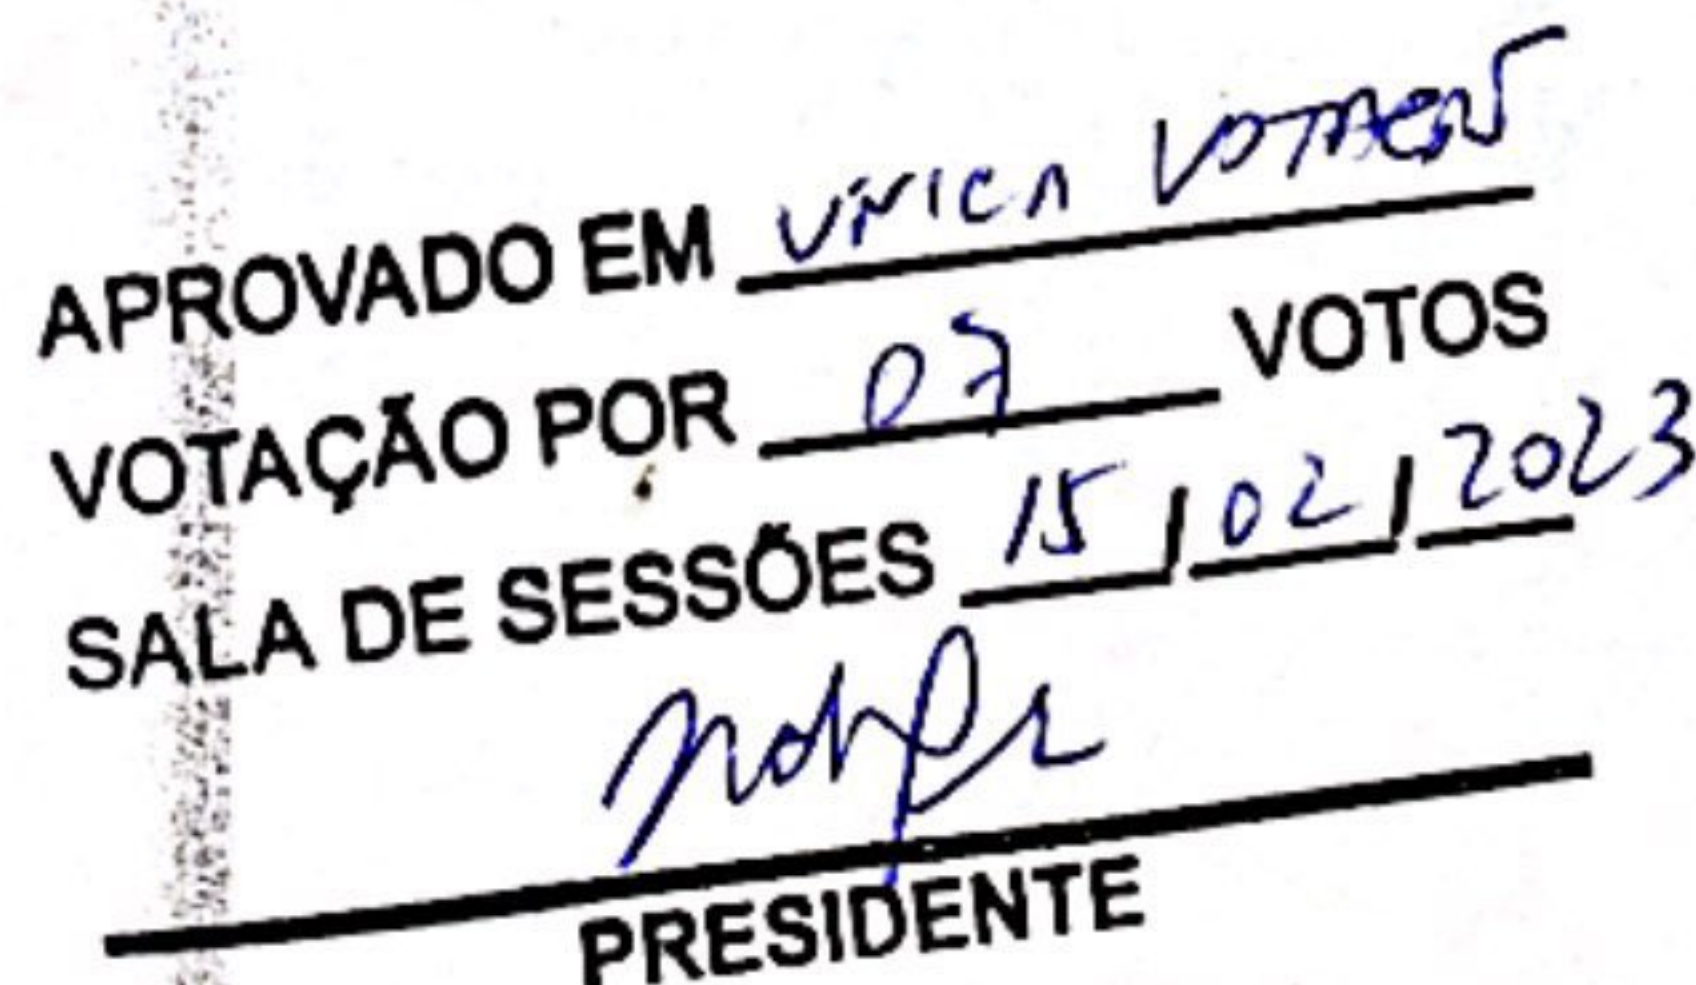 APROVADO EM UNICA VOTAÇÃO
VOTAÇÃO POR 07 VOTOS
SALA DE SESSÕES 15/02/2023
PRESIDENTE